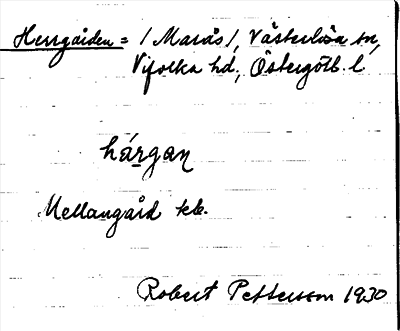 Herrgården = / Marås /, Västerlösa sn,
Vifolka hd, Östergötl. l
hárgan
Mellangård kb.
Robert Pettersson 1930